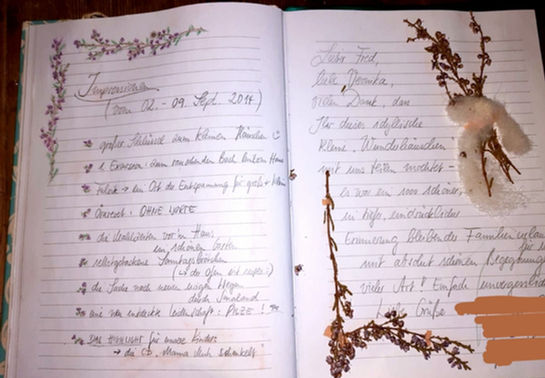 Impressionen
(vom 02. - 09. Sept. 2014)
großer Schlüssel zum kleinen Häuschen
1 Exkursion zum Bach hinterm Haus
ein Ort der Entspannung für groß + klein
OHNE WORTE
die Walderdbeeren vor'm Haus
im schönen Garten
selbstgebackene Sonntagsbrötchen
(der Ofen ist super!)
die Suche nach neuen Wegen
durch Smaland
neu entdeckte Leidenschaft: PILZE!
DAS HIGHLIGHT für unsere Kinder:
→ die CD "Mama Muh schaukelt"
Lieber Fred,
liebe Veronika,
vielen Dank, dass
Ihr dieses idyllische
kleine Wunderhäuschen
mit uns teilen mochtet -
es war ein sooo schöner,
in tiefer, eindrücklicher
Erinnerung bleibender Familienurlaub
mit absolut schönen Begegnungen
vieler Art! Einfach unvergesslich
Liebe Grüße